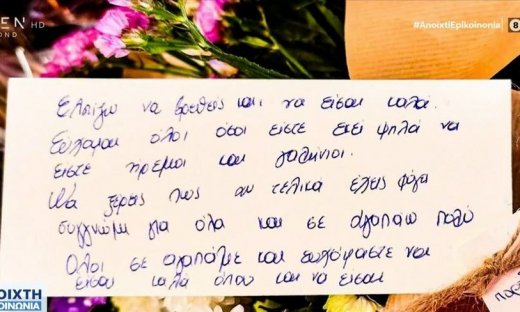 OPEN HD
BEYOND
#ΑνοιχτήΕπικοινωνία
8
Ελπίζω να βρεθείς και να είσαι καλά.
Εύχομαι όλοι όσοι είστε εκεί ψηλά να
είστε ήρεμοι και γαλήνιοι.
Να ξέρεις πως αν τελικά έχεις φύγει
συγγνώμη για όλα και σε αγαπάω πολύ
Όλοι σε αγαπάμε και ευχόμαστε να
είσαι καλά όπου και να είσαι
ΑΝΟΙΧΤΗ
ΕΠΙΚΟΙΝΩΝΙΑ